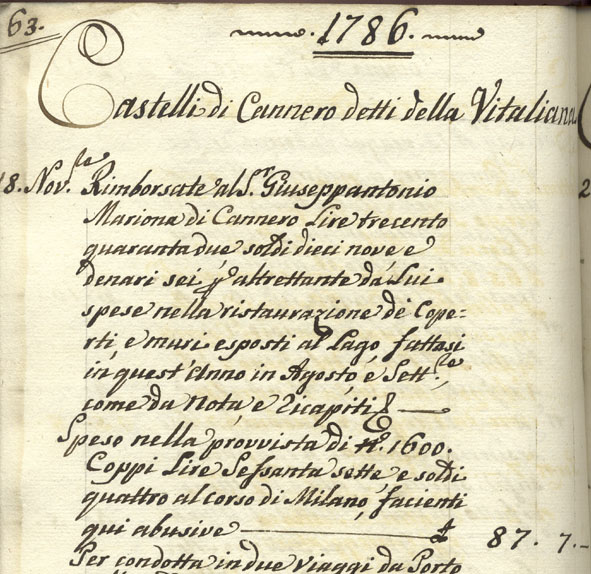 63.
1786.
Castelli di Cannero detti della Vitaliana
18. Nov.e Rimborsate al S.r Giuseppantonio
Mariona di Cannero Lire trecento
quaranta due soldi dieci nove e
denari sei p altrettante da Lui
spese nella ristaurazione de Cope:
rti e muri esposti al Lago fattasi
in quest'Anno in Agosto, e Sett.e,
come da Nota, e Ricapiti
Speso nella provvista di n.o 1600.
Coppi Lire Sessanta sette, e soldi
quattro al corso di Milano, facienti
qui abusive 87. 7.-
Per condotta in due viaggi da Porto